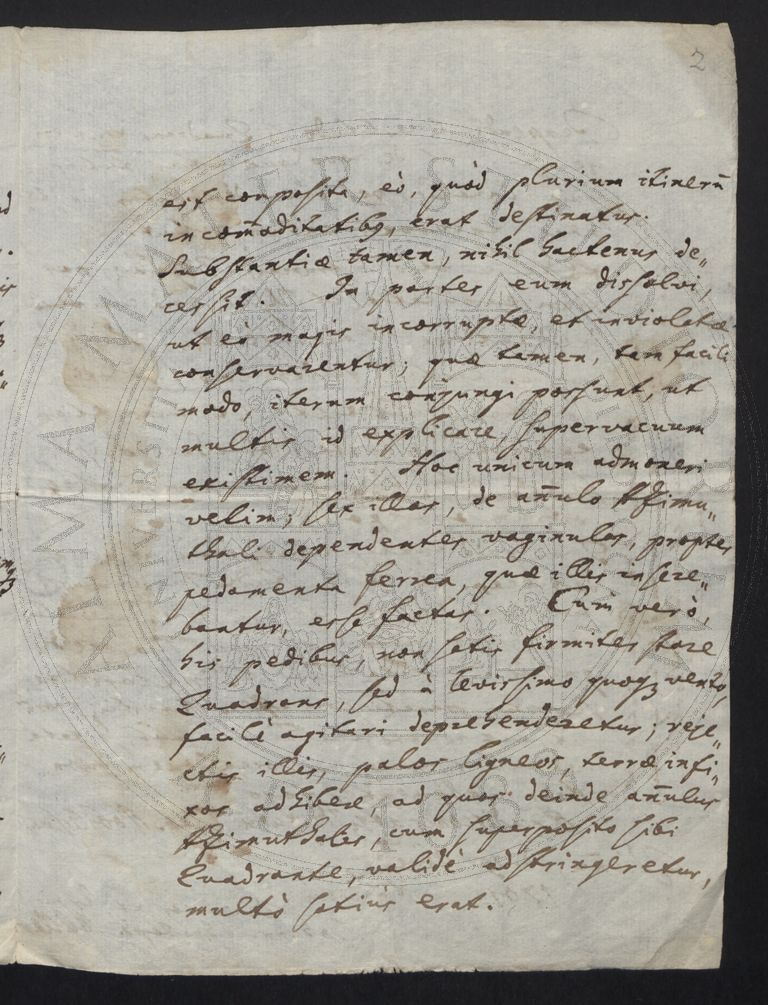 2
est composita, eò, quòd plurium itinerū
incom̄oditatibq, erat destinatus.
Substantiæ tamen, nihil hactenus de„
cessit. In partes eum dissolvi,
ut eò magis incorruptæ, et inviolatæ
conservarentur; quæ tamen, tam facili
modo, iterum conjungi possunt, ut
multis id explicare, supervacuum
existimem. Hoc unicum admoneri
velim; sex illas, de an̄ulo Azimu„
thali dependentes vaginulas, propter
pedamenta ferrea, quæ illis insere„
bantur, esse factas. Cum verò,
his pedibus, non satis firmiter stare
Quadrans, sed à levissimo quoqꝫ vento,
facilè agitari deprehenderetur; reje„
ctis illis, palos ligneos, terræ infi„
xos adhibere, ad quos deinde an̄ulus
Azimuthales, cum superposito sibi
Quadrante, validè adstringeretur,
multò satiùs erat.